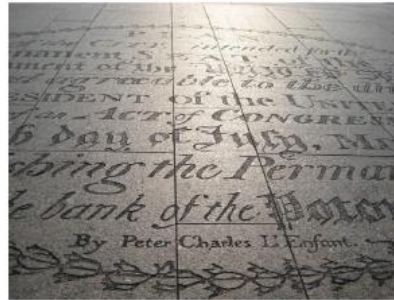 PLAN
of the City, intended for the
Permanent Seat of the
ment of the United St
and agreeable to the di
ESIDENT of the UNITE
an ACT of CONGRES
h day of July, M
shing the Perma
e bank of the Poto
By Peter Charles L'Enfant.